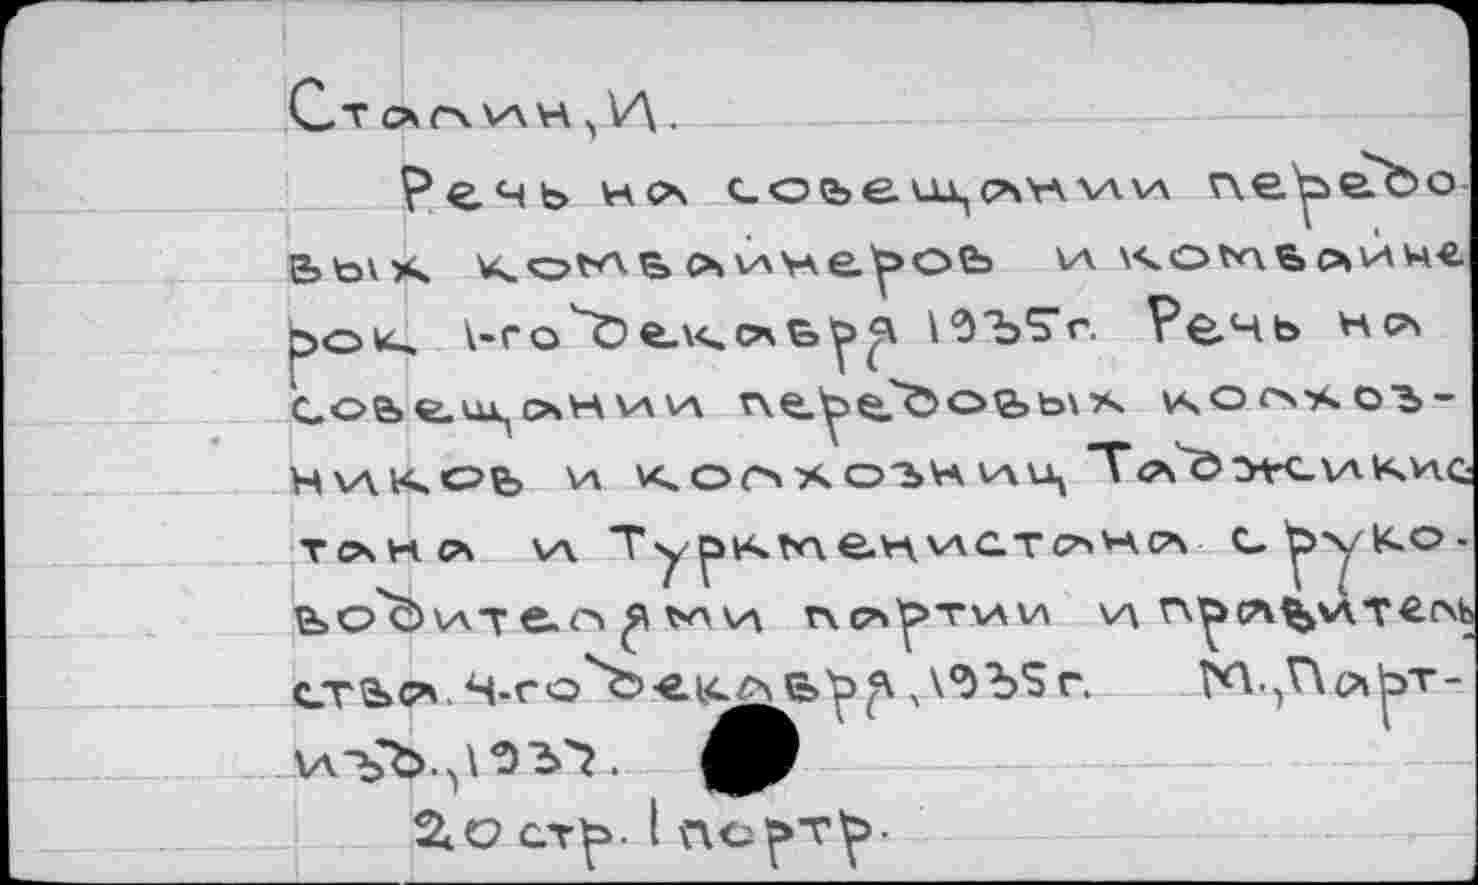 Сталин, И.
Речь на совещании передо-
вых комбайнеров и комбайне
рок 1-го декабря 1935 г. Речь на
совещании передовых колхоз-
ников и колхозниц Таджикис
тана и Туркменистана с руко-
водителями партии и правитель
ства. 4-го декабря, 1935 г. М., Парт-
изд., 1937.
20 стр. 1 портр.